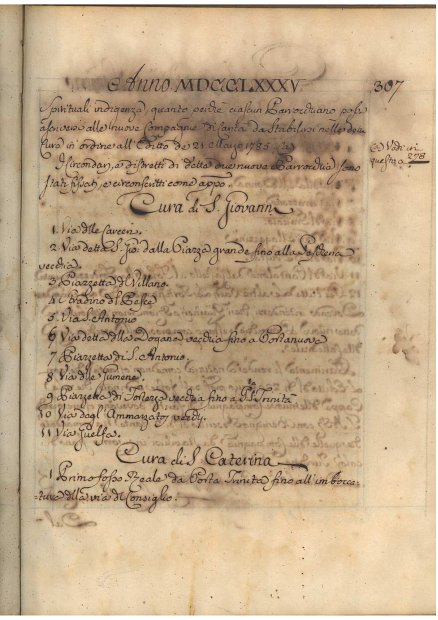 Anno MDCCLXXXV. 307
Spirituali indigenze quanto perche ciascun Parrocchiano possa
ascriversi alle nuove Compagnie di Carità da Stabilirsi nelle
Cure in ordine all' Editto de 21 Marzo 1785
Vedi in
questa a 278
I Circondarj, e distretti di dette due nuove Parrocchie sono
stati fissati, e circonscritti come appo.
Cura di S. Giovanni
1. Via d.lle Carcen.
2. Via detta S. Gio: dalla Piazza grande fino alla
vecchia.
3 Piazzetta di Villano.
4 d.l Pesce
5 Via S. Antonio
6 Via detta d.lla Dogana vecchia fino a Portanuova
7 Piazzetta di S. Antonio.
8 Via d.lle Fumene.
9 Piazzetta di vecchia fino a S.S. Trinità
10 Via degl' Ammazzatoj
11 Via Guelfa.
Cura di S. Caterina
1 Primo fosso Reale da Porta Trinita fino all' imbocca-
tura d.lla via d.l Consiglio.